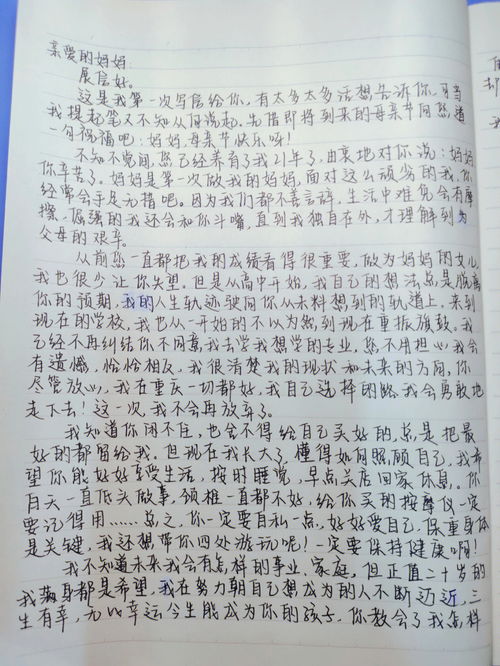 亲爱的妈妈:
展信好。
这是我第一次写信给你,有太多太多话想告诉你,可当
我提起笔又不知从何说起。先借即将到来的母亲节向您道
一句祝福吧:妈妈,母亲节快乐呀!
不知不觉间,您已经养育了我21年了,由衷地对你说:妈妈
你辛苦了。妈妈是第一次做我的妈妈,面对这么顽劣的我,你
经常会手足无措吧。因为我们都不善言辞,生活中难免会有摩
擦,倔强的我还会和你斗嘴,直到我独自在外,才理解到为
父母的艰辛。
从前您一直都把我的成绩看得很重要,做为妈妈的女儿,
我也很少让你失望。但是从高中开始,我自己的想法总是脱离
你的预期,我的人生轨迹驶向你从未料想到的轨道上。来到
现在的学校,我也从一开始的不以为然到现在重振旗鼓。我
已经不再纠结你不同意我去学我想学的专业,您不用担心我会
有遗憾,恰恰相反,我很清楚我的现状和未来的方向,你
尽管放心,我在重庆一切都好,我自己选择的路我会勇敢地
走下去!这一次,我不会再放弃了。
我知道你闲不住,也舍不得给自己买好的,总是把最
好的都留给我。但现在我长大了,懂得如何照顾自己。我希
望你能好好享受生活,按时睡觉,早点关店回家休息。你
白天一直低头做事,颈椎一直都不好,给你买的按摩仪一定
要记得用……总之,你一定要自私一点,好好爱自己,保重身体
是关键,我还想带你四处游玩呢!一定要保持健康啊!
我不知道未来我会有怎样的事业、家庭,但正值二十岁的
我满身都是希望,我在努力朝自己想成为的人不断迈近,三
生有幸,无比幸运今生能成为你的孩子,你教会了我怎样